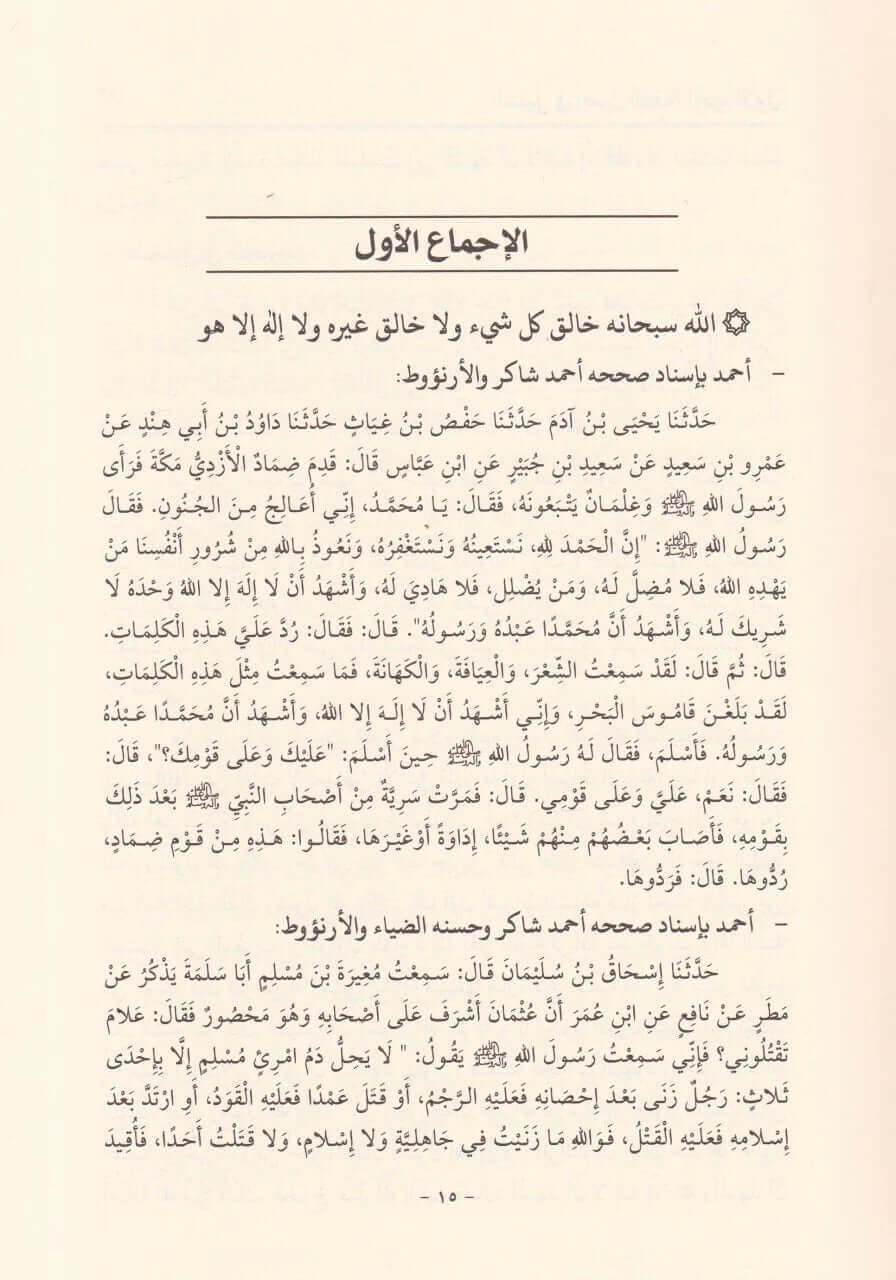 الإجماع الأول
۞ الله سبحانه خالق كل شيء ولا خالق غيره ولا إله إلا هو
- أحمد بإسناد صححه أحمد شاكر والأرنؤوط:
حَدَّثَنَا يَحْيَى بْنُ آدَمَ حَدَّثَنَا حَفْصُ بْنُ غِيَاثٍ حَدَّثَنَا دَاوُدُ بْنُ أَبِي هِنْدٍ عَنْ
عَمْرِو بْنِ سَعِيدٍ عَنْ سَعِيدِ بْنِ جُبَيْرٍ عَنِ ابْنِ عَبَّاسٍ قَالَ: قَدِمَ ضِمَادٌ الْأَزْدِيُّ مَكَّةَ فَرَأَى
رَسُولَ اللهِ ﷺ وَغِلْمَانٌ يَتْبَعُونَهُ، فَقَالَ: يَا مُحَمَّدُ، إِنِّي أُعَالِجُ مِنَ الجُنُونِ. فَقَالَ
رَسُولُ اللهِ ﷺ: "إِنَّ الْحَمْدَ لِلهِ، نَسْتَعِينُهُ وَنَسْتَغْفِرُهُ، وَنَعُوذُ بِاللهِ مِنْ شُرُورِ أَنْفُسِنَا مَنْ
يَهْدِهِ اللهُ، فَلا مُضِلَّ لَهُ، وَمَنْ يُضْلِل، فَلا هَادِيَ لَهُ، وَأَشْهَدُ أَنْ لَا إِلَهَ إِلا اللهُ وَحْدَهُ لَا
شَرِيكَ لَهُ، وَأَشْهَدُ أَنَّ مُحَمَّدًا عَبْدُهُ وَرَسُولُهُ". قَالَ: فَقَالَ: رُدَّ عَلَيَّ هَذِهِ الْكَلِمَاتِ.
قَالَ: ثُمَّ قَالَ: لَقَدْ سَمِعْتُ الشِّعْرَ، وَالْعِيَافَةَ، وَالْكَهَانَةَ، فَمَا سَمِعْتُ مِثْلَ هَذِهِ الْكَلِمَاتِ،
لَقَدْ بَلَغْنَ قَامُوسَ الْبَحْرِ، وَإِنِّي أَشْهَدُ أَنْ لَا إِلَهَ إِلا اللهُ، وَأَشْهَدُ أَنَّ مُحَمَّدًا عَبْدُهُ
وَرَسُولُهُ. فَأَسْلَمَ، فَقَالَ لَهُ رَسُولُ اللهِ ﷺ حِينَ أَسْلَمَ: "عَلَيْكَ وَعَلَى قَوْمِكَ؟"، قَالَ:
فَقَالَ: نَعَمْ، عَلَيَّ وَعَلَى قَوْمِي. قَالَ: فَمَرَّتْ سَرِيَّةٌ مِنْ أَصْحَابِ النَّبِيِّ ﷺ بَعْدَ ذَلِكَ
بِقَوْمِهِ، فَأَصَابَ بَعْضُهُمْ مِنْهُمْ شَيْئًا، إِدَاوَةً أَوْغَيْرَهَا، فَقَالُوا: هَذِهِ مِنْ قَوْمِ ضِمَادٍ،
رُدُّوهَا. قَالَ: فَرَدُّوهَا.
- أحمد بإسناد صححه أحمد شاكر وحسنه الضياء والأرنؤوط:
حَدَّثَنَا إِسْحَاقُ بْنُ سُلَيْمَانَ قَالَ: سَمِعْتُ مُغِيرَةَ بْنَ مُسْلِمٍ أَبَا سَلَمَةَ يَذْكُرُ عَنْ
مَطَرٍ عَنْ نَافِعٍ عَنِ ابْنِ عُمَرَ أَنَّ عُثْمَانَ أَشْرَفَ عَلَى أَصْحَابِهِ وَهُوَ مَحْصُورٌ فَقَالَ: عَلامَ
تَقْتُلُونِي؟ فَإِنِّي سَمِعْتُ رَسُولَ اللهِ ﷺ يَقُولُ: " لَا يَحِلُّ دَمُ امْرِئٍ مُسْلِمٍ إِلَّا بِإِحْدَى
ثَلاثٍ: رَجُلٌ زَنَى بَعْدَ إِحْصَانِهِ فَعَلَيْهِ الرَّجْمُ، أَوْ قَتَلَ عَمْدًا فَعَلَيْهِ الْقَوَدُ، أَوِ ارْتَدَّ بَعْدَ
إِسْلامِهِ فَعَلَيْهِ الْقَتْلُ، فَوَاللهِ مَا زَنَيْتُ فِي جَاهِلِيَّةٍ وَلا إِسْلامٍ، وَلا قَتَلْتُ أَحَدًا، فَأُقِيدَ
- ١٥ -